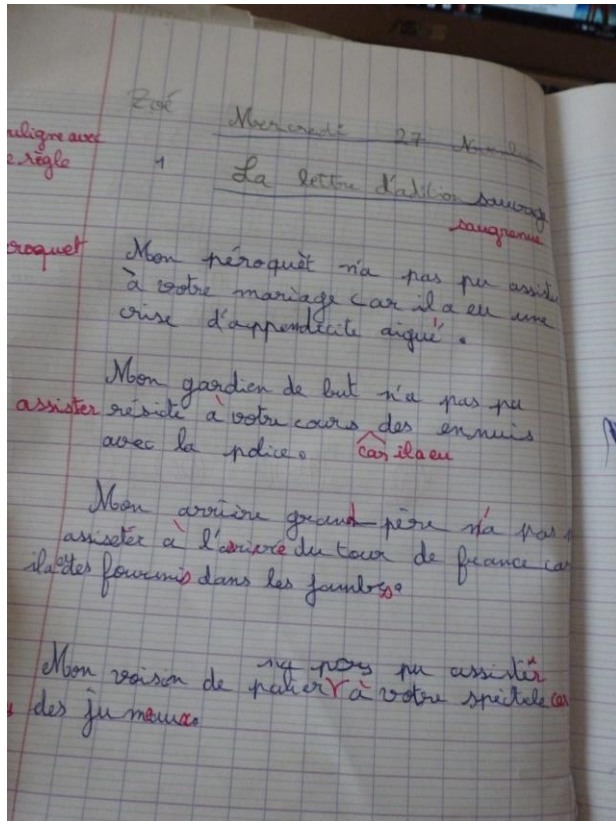 Zoé Mercredi 27
ouligne avec
règle
1 La lettre d'adition sauvage
saugrenue
roquet Mon péroquèt n'a pas pu assister
à votre mariage car il a eu une
crise d'appendicite aiguë.
Mon gardien de but n'a pas pu
assister réside à votre cours des ennuis
avec la police. car il a eu
Mon arrière grand-père n'a pas
assiseter à l'arivée du tour de france car
il a des fourmis dans les jambes.
Mon voison de palier n'a pas pu assister
à votre spéctcle car
des jumeaux.